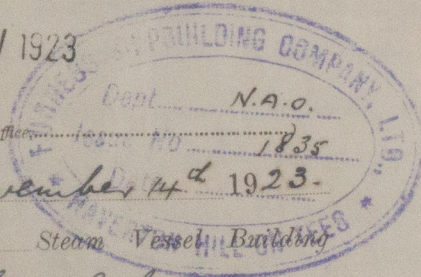 1923
FURNESS SHIPBUILDING COMPANY, LTD.,
Dept. N.A.O.
Office
Issue No 1835
Date
vember 14th 1923.
HAVERTON HILL ON TEES
Steam Vessel Building